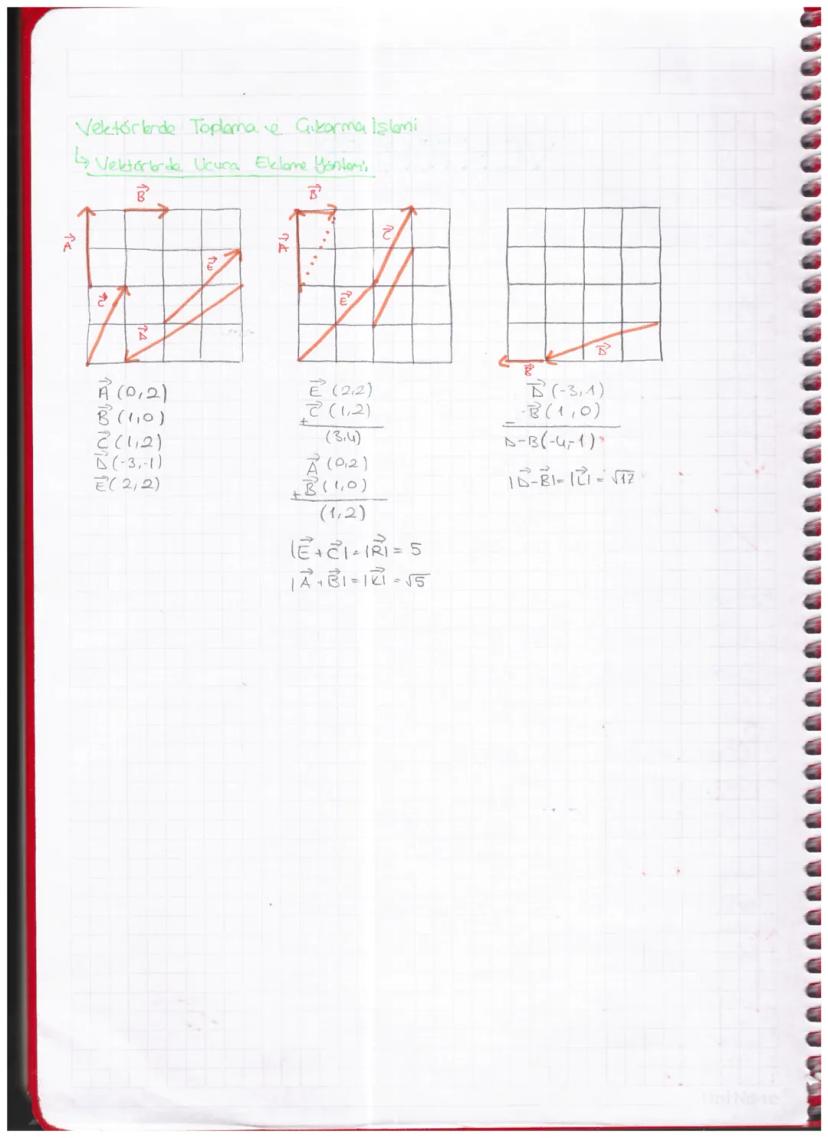 Vektörlerde Toplama ve Çıkarma İşlemi
↳ Vektörlerde Ucuca Ekleme Yöntemi
B
A
C
E
D
A (0,2)
B (1,0)
C (1,2)
D (-3,-1)
E (2,2)
B
A
C
E
E (2,2)
C (1,2)
+
(3,4)
A (0,2)
+ B (1,0)
(1,2)
|E + C| = |R| = 5
|A + B| = |K| = √5
B
D
D (-3,1)
-B (1,0)
-
D-B(-4,-1)
|D-B| = |L| = √17
UniNote